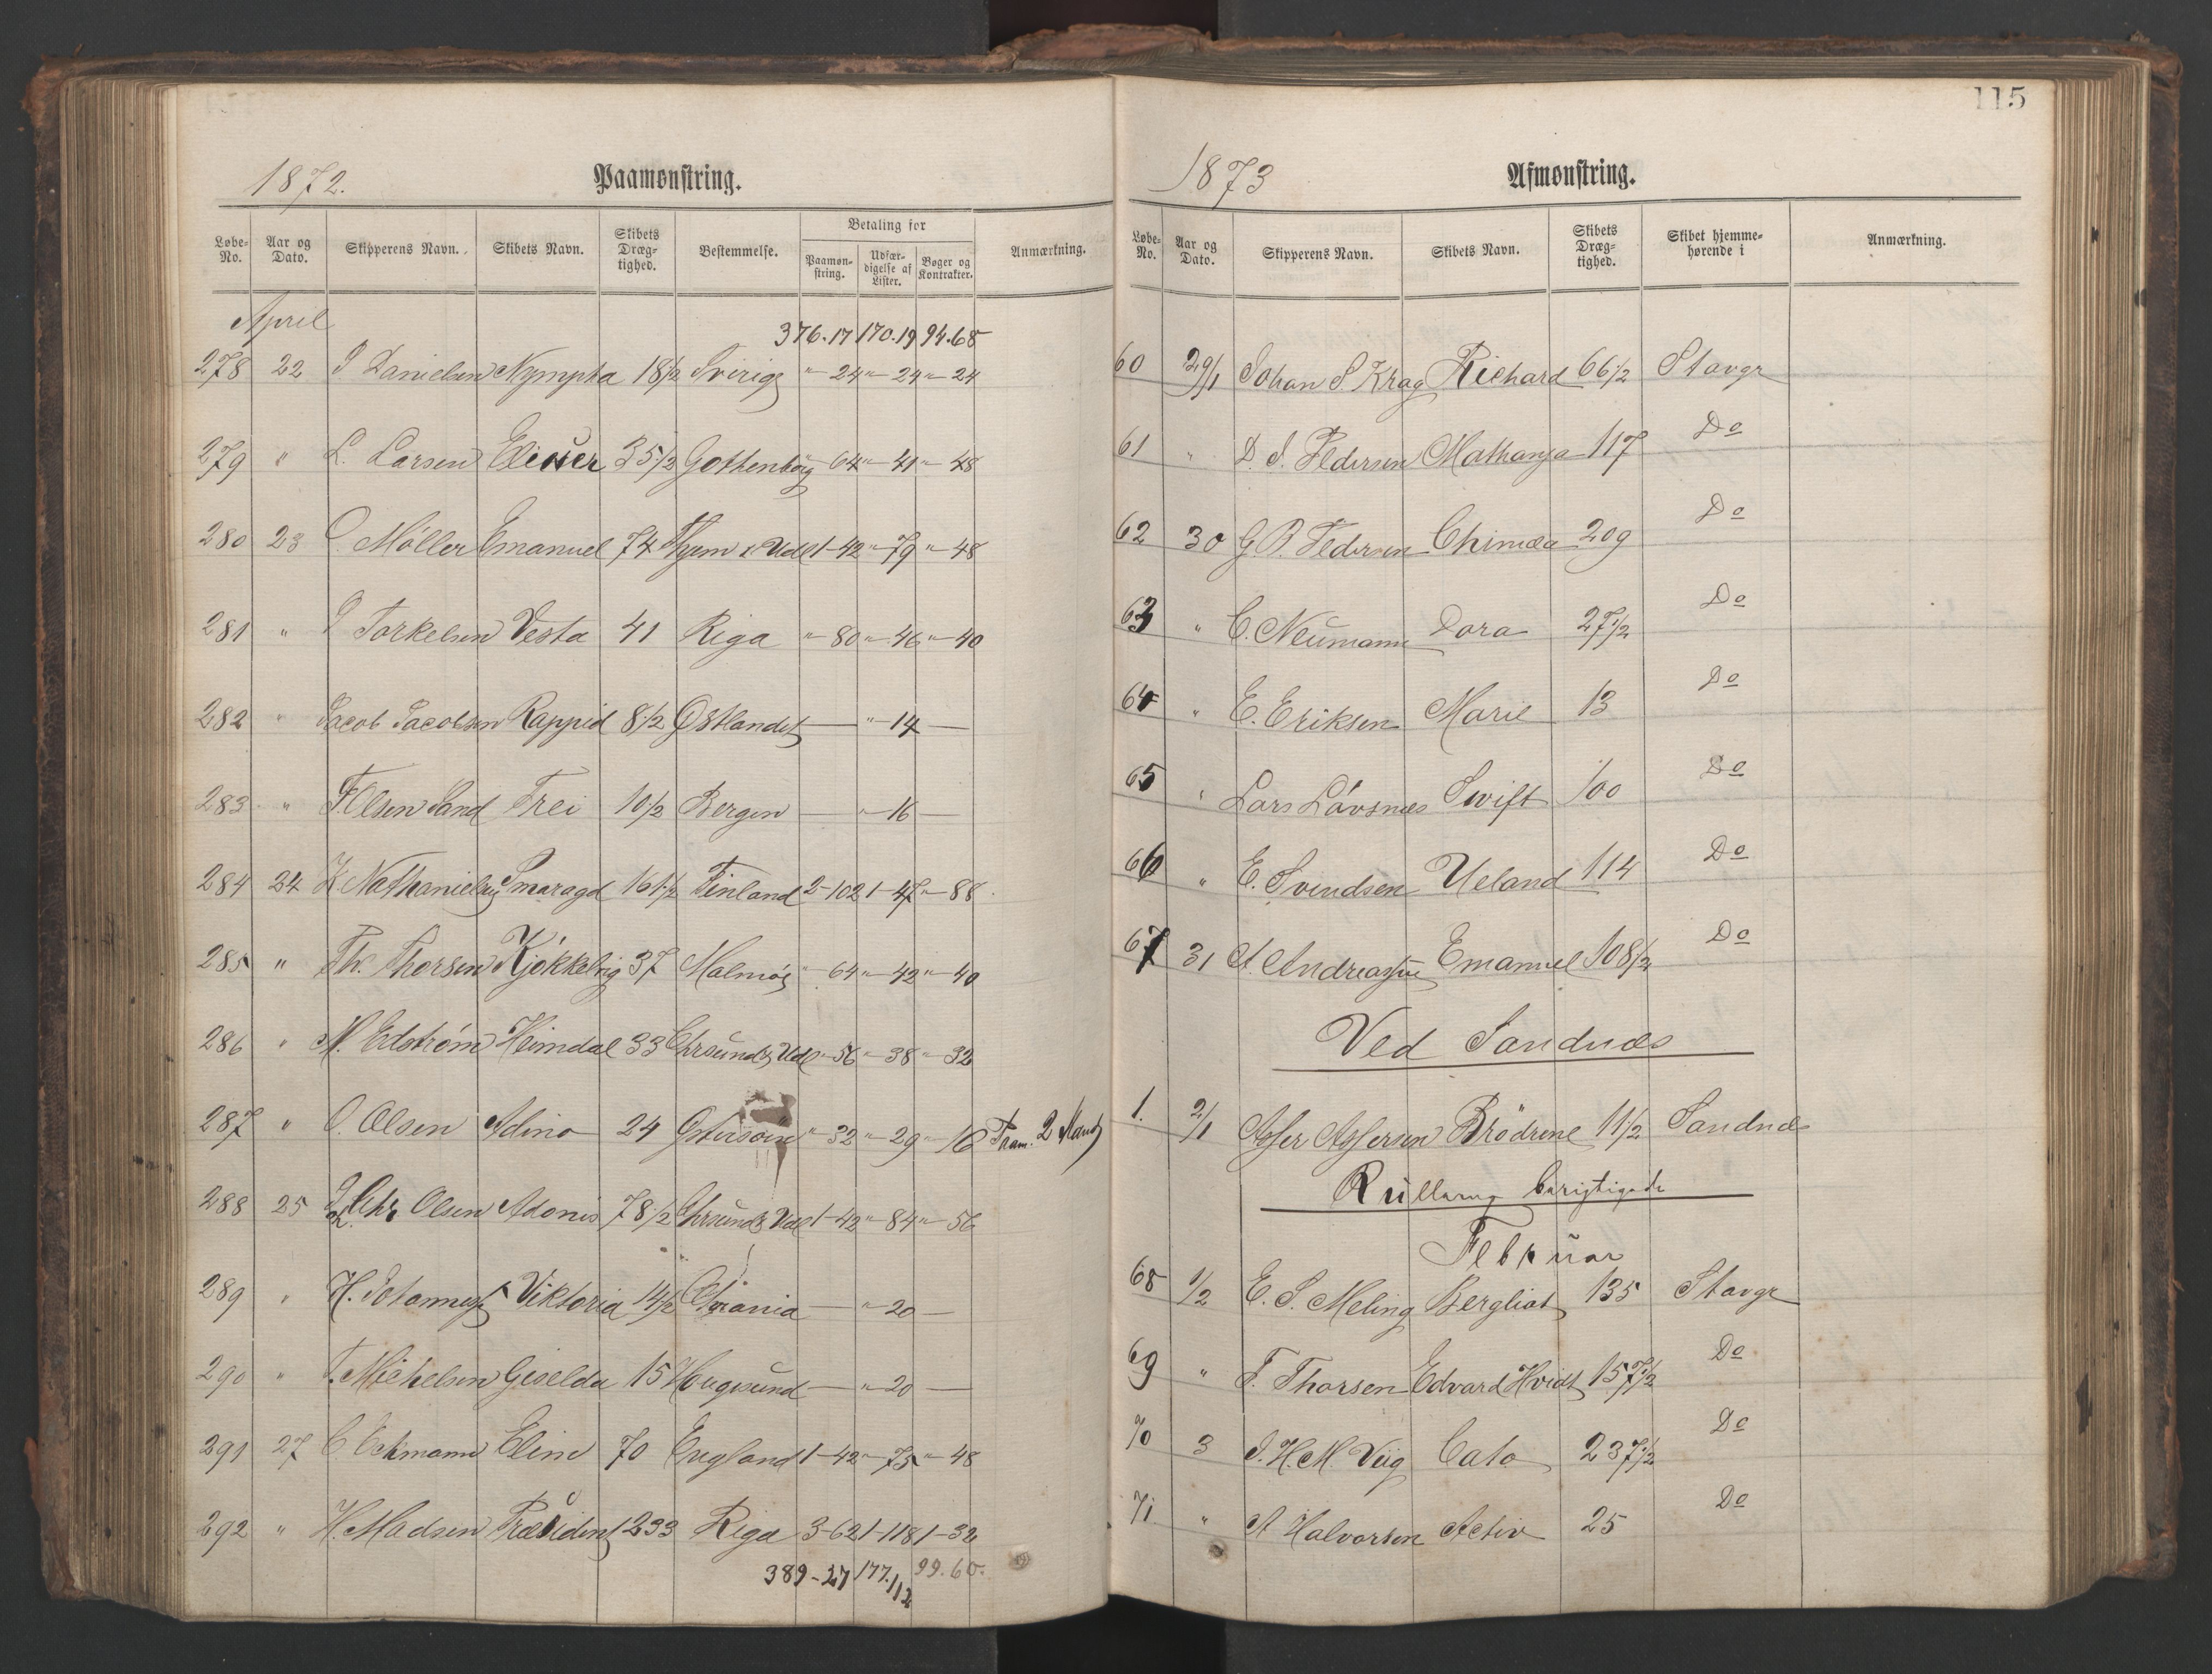 1872.
Paamønstring.
Løbe-No. Aar og Dato. Skipperens Navn. Skibets Navn. Skibets Dræg-tighed. Bestemmelse. Betaling for Paamøn-string. Udfær-digelse af Lister. Bøger og Kontrakter. Anmærkning.
April
376.17 170.19 94.68
278 22 Danielsen Nympha 18 1/2 Sverige " - 24 " - 24 " - 24
279 " L. Larsen 35 1/2 Gothenborg " - 64 " - 41 " - 48
280 23 Møller Emanuel 74 & Udl 1 - 42 " - 79 " - 48
281 " Torkelsen Vesta 41 Riga " - 80 " - 46 " - 40
282 " Jacob Jacobsen Rappid 8 1/2 Østlandet — " - 14 —
283 " F. Olsen Sand Frei 10 1/2 Bergen — " - 16 —
284 24 K. Nathanielsen Smaragd 161 1/2 Finland 2 - 102 1 - 47 " - 88
285 " Th. Thorsen 37 Malmø " - 64 " - 42 " - 40
286 " N. Edstrøm Heimdal 33 Chrsund & Udl " - 56 " - 38 " - 32
287 " O. Olsen Adino 24 " - 32 " - 29 " - 16 2 Mand
288 25 Chr Olsen Adonis 78 1/2 Chrsund & Udl 1 - 42 " - 84 " - 56
289 " H. Viktoria 14 1/2 Chrania — " - 20 —
290 " T. Michelsen Giselda 15 Haugesund — " - 20 —
291 27 C. Eckmann Elim 70 England 1 - 42 " - 75 " - 48
292 " H. Madsen Præsident 233 Riga 3 - 62 1 - 118 1 - 32
389 - 27 177.112 99.60.
115
1873
Afmønstring.
Løbe-No. Aar og Dato. Skipperens Navn. Skibets Navn. Skibets Dræg-tighed. Skibet hjemme-hørende i Anmærkning.
60 29/1 Johan S. Krag Richard 66 1/2 Stavgr
61 " D. S. Pedersen 117 Do
62 30 G. P. Pedersen Chimæa 209 Do
63 " C. Neumann Dora 27 1/2 Do
64 " E. Eriksen Marie 13 Do
65 " Lars Løvsnæs Swift 100 Do
66 " E. Svendsen Ueland 114 Do
67 31 A. Andreassen Emanuel 108 1/2 Do
Ved Sandnæs
1. 2/1 Asser Assersen Brødrene 11 1/2 Sandnæs
Rullerne berigtigede
Februar
68 1/2 E. S. Meling Bergliot 135 Stavgr
69 " T. Thorsen Edvard Hvidt 157 1/2 Do
70 3 J. H. M. Viig Cato 237 1/2 Do
71 " A Halvorsen Activ 25 Do